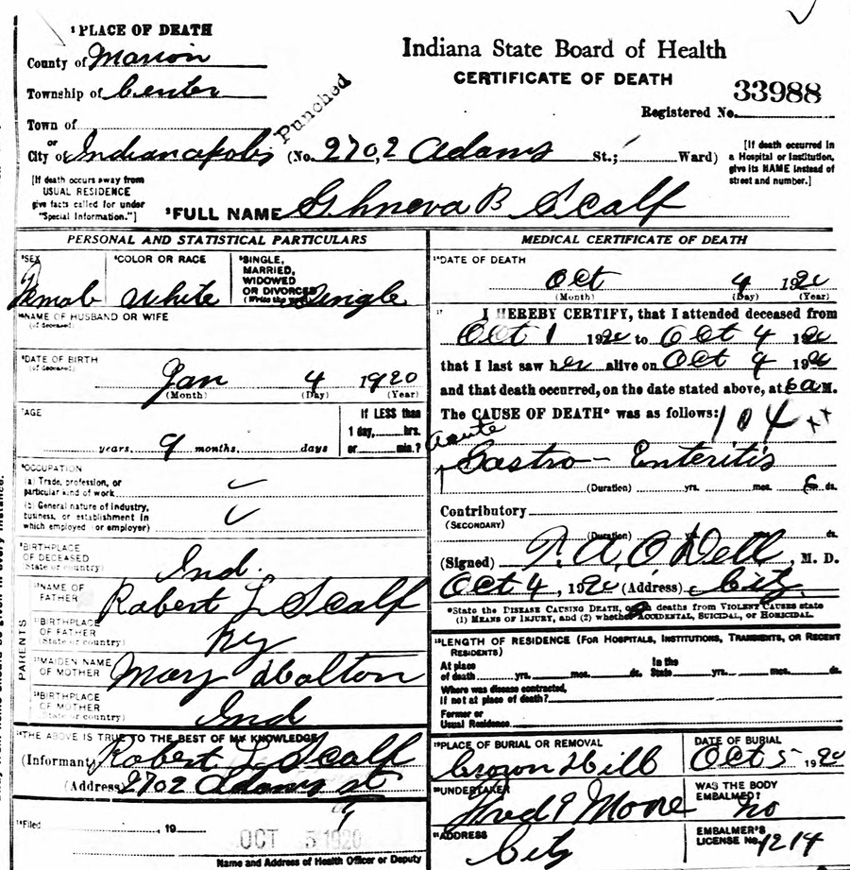 ¹PLACE OF DEATH
County of Marion
Township of Center
Town of
or
City of Indianapolis (No. 2702 Adams St.; Ward)
Punched
Indiana State Board of Health
CERTIFICATE OF DEATH
33988
Registered No.
[If death occurred in a Hospital or Institution, give its NAME instead of street and number.]
[If death occurs away from USUAL RESIDENCE give facts called for under "Special Information."]
²FULL NAME B Scalf
PERSONAL AND STATISTICAL PARTICULARS
SEX
Female
COLOR OR RACE
White
SINGLE, MARRIED, WIDOWED OR DIVORCED
Single
NAME OF HUSBAND OR WIFE
(of deceased)
DATE OF BIRTH
(of deceased)
Jan 4 1920
(Month) (Day) (Year)
AGE
years, 9 months, days
If LESS than
1 day, hrs.
or min.?
OCCUPATION
(a) Trade, profession, or particular kind of work
(b) General nature of industry, business, or establishment in which employed (or employer)
BIRTHPLACE OF DECEASED
(State or country)
Ind.
PARENTS
NAME OF FATHER
Robert L Scalf
BIRTHPLACE OF FATHER
(State or country)
Ky
MAIDEN NAME OF MOTHER
Mary Dalton
BIRTHPLACE OF MOTHER
(State or country)
Ind
THE ABOVE IS TRUE TO THE BEST OF MY KNOWLEDGE
(Informant) Robert L Scalf
(Address) 2702 Adams st
Filed 19
OCT 5 1920
Name and Address of Health Officer or Deputy
MEDICAL CERTIFICATE OF DEATH
DATE OF DEATH
Oct 4 1920
(Month) (Day) (Year)
I HEREBY CERTIFY, that I attended deceased from
Oct 1 1920 to Oct 4 1920
that I last saw her alive on Oct 4 1920
and that death occurred, on the date stated above, at 6 a M.
The CAUSE OF DEATH* was as follows:
104
Acute
Gastro-Enteritis
(Duration) yrs. mos. 6 ds.
Contributory
(SECONDARY)
(Duration) ds.
(Signed) T. A. O'Dell, M. D.
Oct 4, 1920 (Address) City
*State the DISEASE CAUSING DEATH, or deaths from VIOLENT CAUSES state
(1) MEANS OF INJURY, and (2) whether ACCIDENTAL, SUICIDAL, OR HOMICIDAL.
LENGTH OF RESIDENCE (FOR HOSPITALS, INSTITUTIONS, TRANSIENTS, OR RECENT RESIDENTS)
At place of death yrs. mos. ds. In the State yrs. mos. ds.
Where was disease contracted, if not at place of death?
Former or Usual Residence
PLACE OF BURIAL OR REMOVAL
Crown Hill
DATE OF BURIAL
Oct 5 1920
UNDERTAKER
Moore
WAS THE BODY EMBALMED?
no
ADDRESS
City
EMBALMER'S LICENSE No. 1214